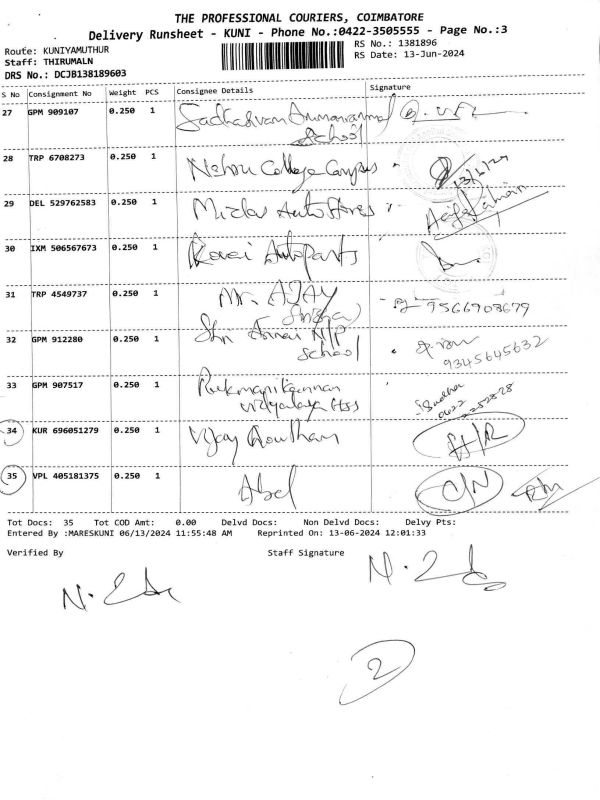 THE PROFESSIONAL COURIERS, COIMBATORE
Delivery Runsheet - KUNI - Phone No.:0422-3505555 - Page No.:3
Route: KUNIYAMUTHUR
RS No.: 1381896
Staff: THIRUMALN
RS Date: 13-Jun-2024
DRS No.: DCJB138189603
S No Consignment No Weight PCS Consignee Details Signature
27 GPM 909107 0.250 1
School
28 TRP 6708273 0.250 1 Nehru College Campus 13/6/24
29 DEL 529762583 0.250 1 Auto Stores
30 IXM 506567673 0.250 1 Kovai Autoparts
31 TRP 4549737 0.250 1 Mr. AJAY 9566903679
32 GPM 912280 0.250 1 Shri N/P
School 9345645632
33 GPM 907517 0.250 1 Rukmanikannan
Vidyalaya Hss Sudha
0422
2252828
34 KUR 696051279 0.250 1 Vijay Goutham
35 VPL 405181375 0.250 1 Abel C/N
Tot Docs: 35 Tot COD Amt: 0.00 Delvd Docs: Non Delvd Docs: Delvy Pts:
Entered By :MARESKUNI 06/13/2024 11:55:48 AM Reprinted On: 13-06-2024 12:01:33
Verified By Staff Signature
2